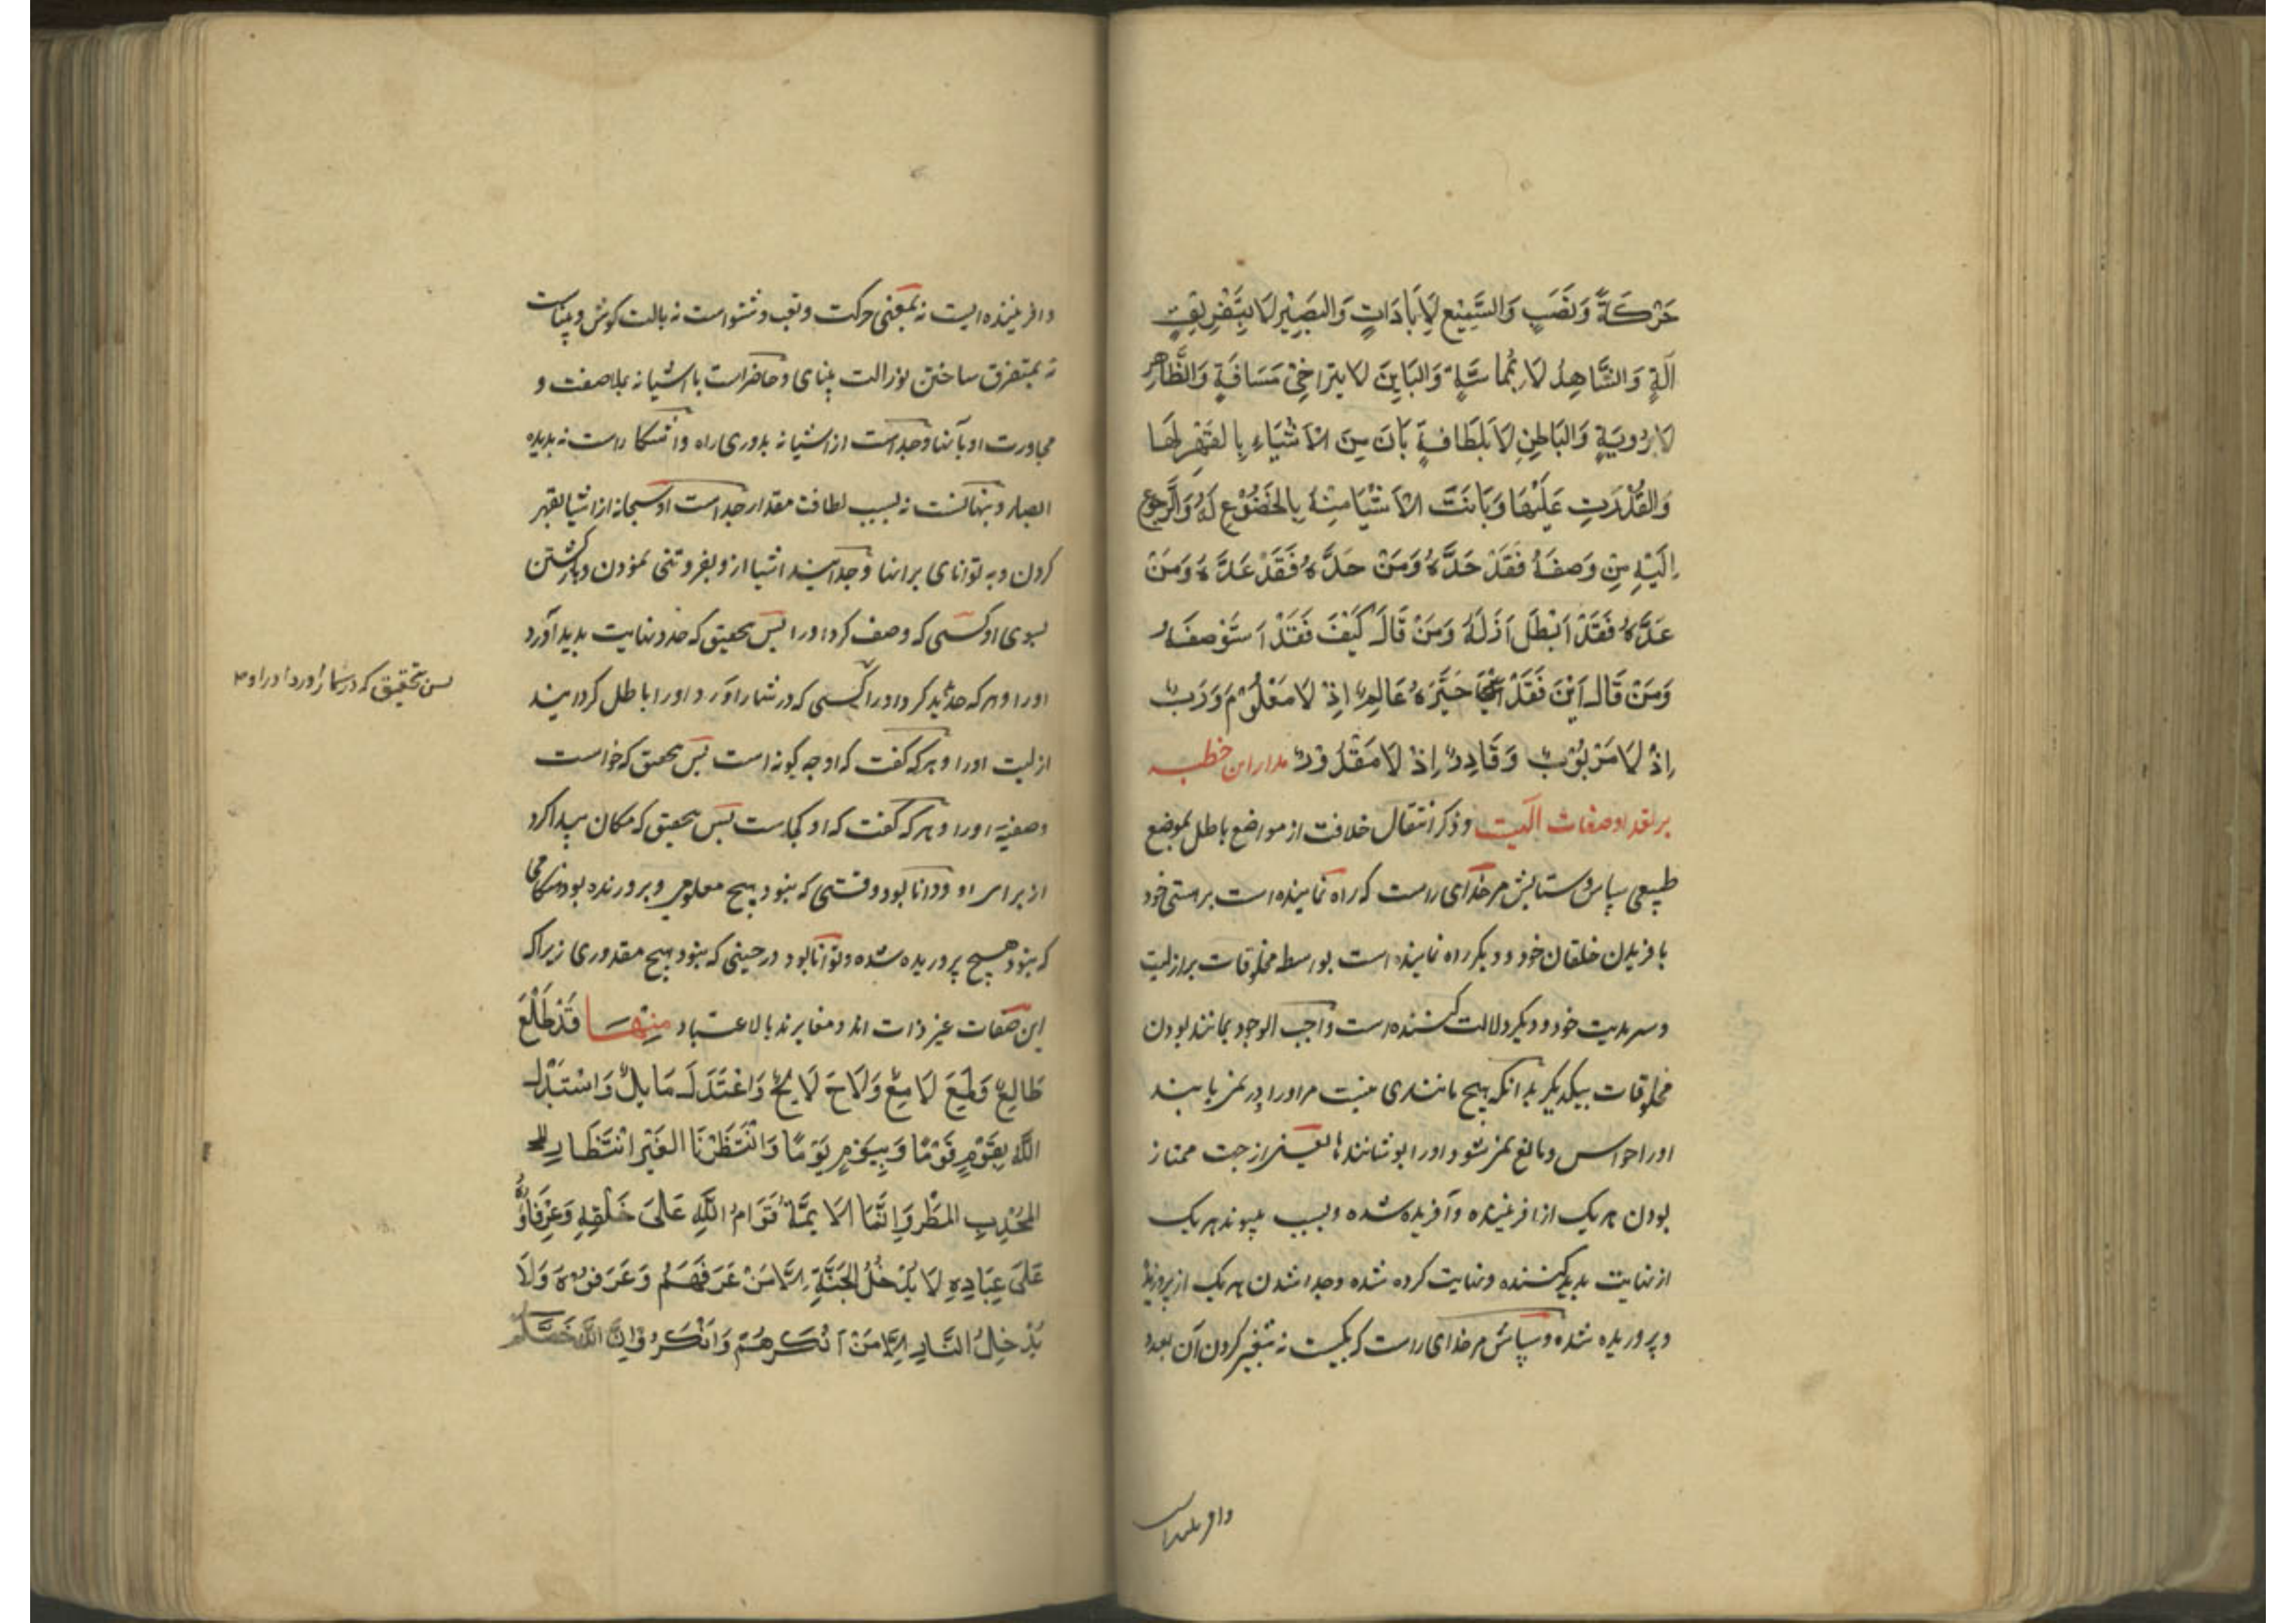 حَرَكَةٍ وَنَصَبٍ وَالسَّمِيْعِ لَا بَادَاتٍ وَالبَصِيْرِ لَا بِتَفْرِيْقِ
آلَةٍ وَالشَّاهِدُ لَا بِمُمَاسَّةٍ وَالبَايِنَ لَا بتراخِیْ مَسَافَةٍ وَالظَّاهِرِ
لَا بِرُويَةٍ وَالبَاطِنِ لَا بِلَطَافَةٍ بَانَ مِنَ الاَشْيَاءِ بِالقَهْرِ لَهَا
وَالقُدْرَتِ عَلَيْهَا وَبَانَتَ الاَشْيَا مِنْهُ بِالخُضُوْعِ لَهُ وَالرُّجُوعِ
اِلَيْهِ مِنْ وَصَفَهُ فَقَدْ حَدَّهُ وَمَنْ حَدَّهُ فَقَدْ عَدَّهُ وَمَنْ
عَدَّهُ فَقَدْ اَبْطَلَ اَزَلَهُ وَمَنْ قَالَ كَيْفَ فَقَدْ اَسْتَوْصَفَهُ
وَمَنْ قَالَ اَيْنَ فَقَدْ حَيَّزَهُ عَالِمٌ اِذْ لَا مَعْلُوْمَ وَرَبٌ
اِذْ لَا مَرْبُوْبٌ وَقَادِرٌ اِذْ لَا مَقْدُوْرٌ مدار این خطبه
بر تعداد صفات الهیت وذکر انتقال خلافت از مواضع باطل بموضع
طبیعی سپاس وستایش مر خدای راست که راه نماینده است بر هستی خود
بافریدن خلقان خود ودیگر راه نماینده است بواسطه مخلوقات بر ازلیت
وسرمدیت خود ودیگر دلالت کننده است واجب الوجود بمانند بودن
مخلوقات بیکدیگر بدانکه هیچ مانندی نیست مر اورا در نمی یابند
اورا حواس ومانع نمی شود اورا پوشانندها یعنی از جهت ممتاز
بودن هر یک از افریننده وآفریده شده وبسبب پیوند هر یک
از نهایت پدید کننده ونهایت کرده شده وجدا شدن هر یک از پرورنده
وپروریده شده وسپاس مر خدای راست که یکیست نه بتغییر کردن آن بعدد
وافریننده است
وافریننده ایست نه بمعنی حرکت وتعب وشنواست نه بالت کوش وبیناست
نه بمتفرق ساختن نور الت بینای وحاضر است با اشیا نه بملاصقت و
مجاورت او بآنها وجداست از اشیا نه بدوری راه واشکارا است نه بدیده
ابصار وپنهانست نه بسبب لطافت مقدار جداست او سبحانه از اشیا بقهر
کردن وبه توانای بر انها وجدایند اشیا ازو بفروتنی نمودن وبازگشتن
بسوی او کسی که وصف کرد اورا پس بتحقیق که حد ونهایت پدید آورد
اورا وهر که حد پدید کرد اورا کسی که در شمار اورد اورا باطل کردانید
پس بتحقیق که در شمار اورد اورا و
ازلیت اورا وهر که گفت که او چه کونه است پس بتحقیق که خواست
وصفیه اورا وهر که گفت که او کجاست پس بتحقیق که مکان پیدا کرد
از برای او ودانا بود وقتی که نبود هیچ معلومی وپرورنده بود هنکامی
که نبود هیچ پروریده شده وتوانا بود در حینی که نبود هیچ مقدوری زیرا که
این صفات عین ذات اند ومغایرند بالاعتبار مِنْهَا قَدْ طَلَعَ
طَالِعٌ وَلَمَعَ لَامِعٌ وَلَاحَ لَايِحٌ وَاعْتَدَلَ مَايِلٌ وَاسْتَبْدَلَ
اللّٰهُ بِقَوْمٍ قَوْمًا وَبِيَوْمٍ يَوْمًا وَانْتَظَرْنَا الغَيْرَ انْتَظَارِ
المُجْدِبِ المَطْرَ وَاِنَّمَا الاَيِمَّةُ قَوَامُ اللّٰهِ عَلَى خَلْقِهِ وَعُرَفَاؤُهُ
عَلَى عِبَادِهِ لَا يَدْخُلُ الجَنَّةَ اِلَّا مَنْ عَرَفَهُمْ وَعَرَفُوْهُ وَلَا
يَدْخُلُ النَّارِ اِلَّا مَنْ اَنْكَرَهُمْ وَاَنْكَرُوْهُ اِنَّ اللّٰهَ خَصَّكُمْ